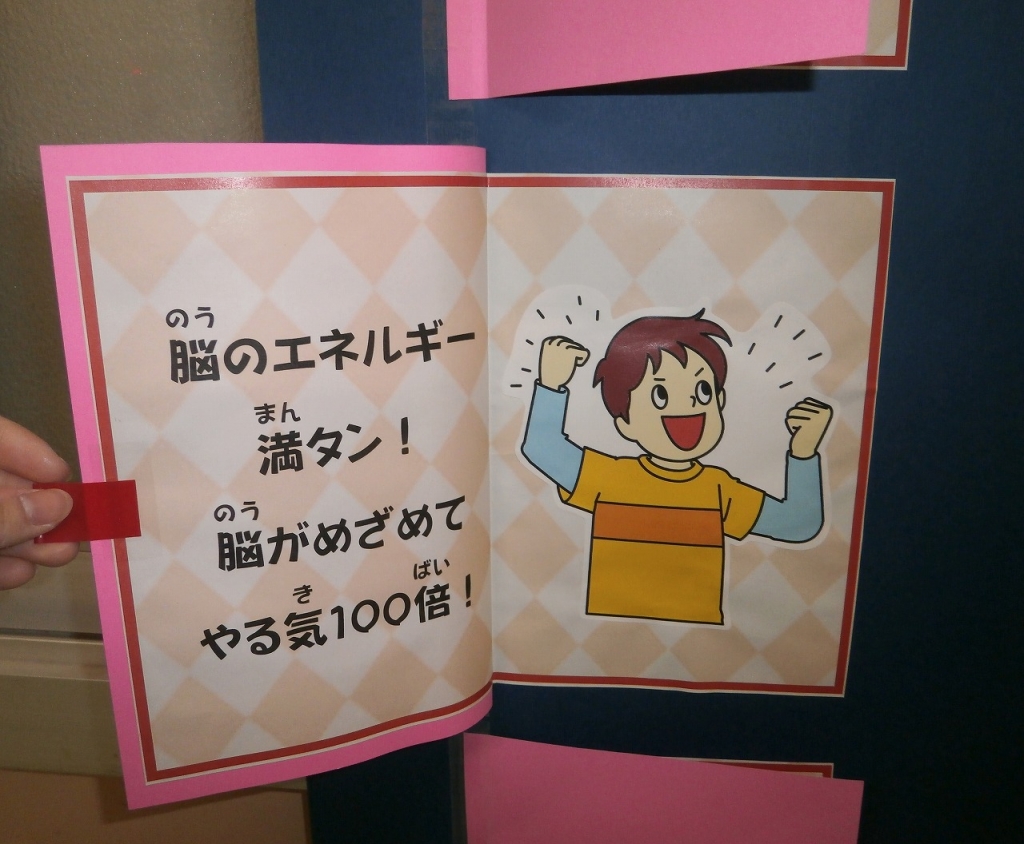 のう
脳のエネルギー
まん
満タン！
のう
脳がめざめて
き ばい
やる気100倍！